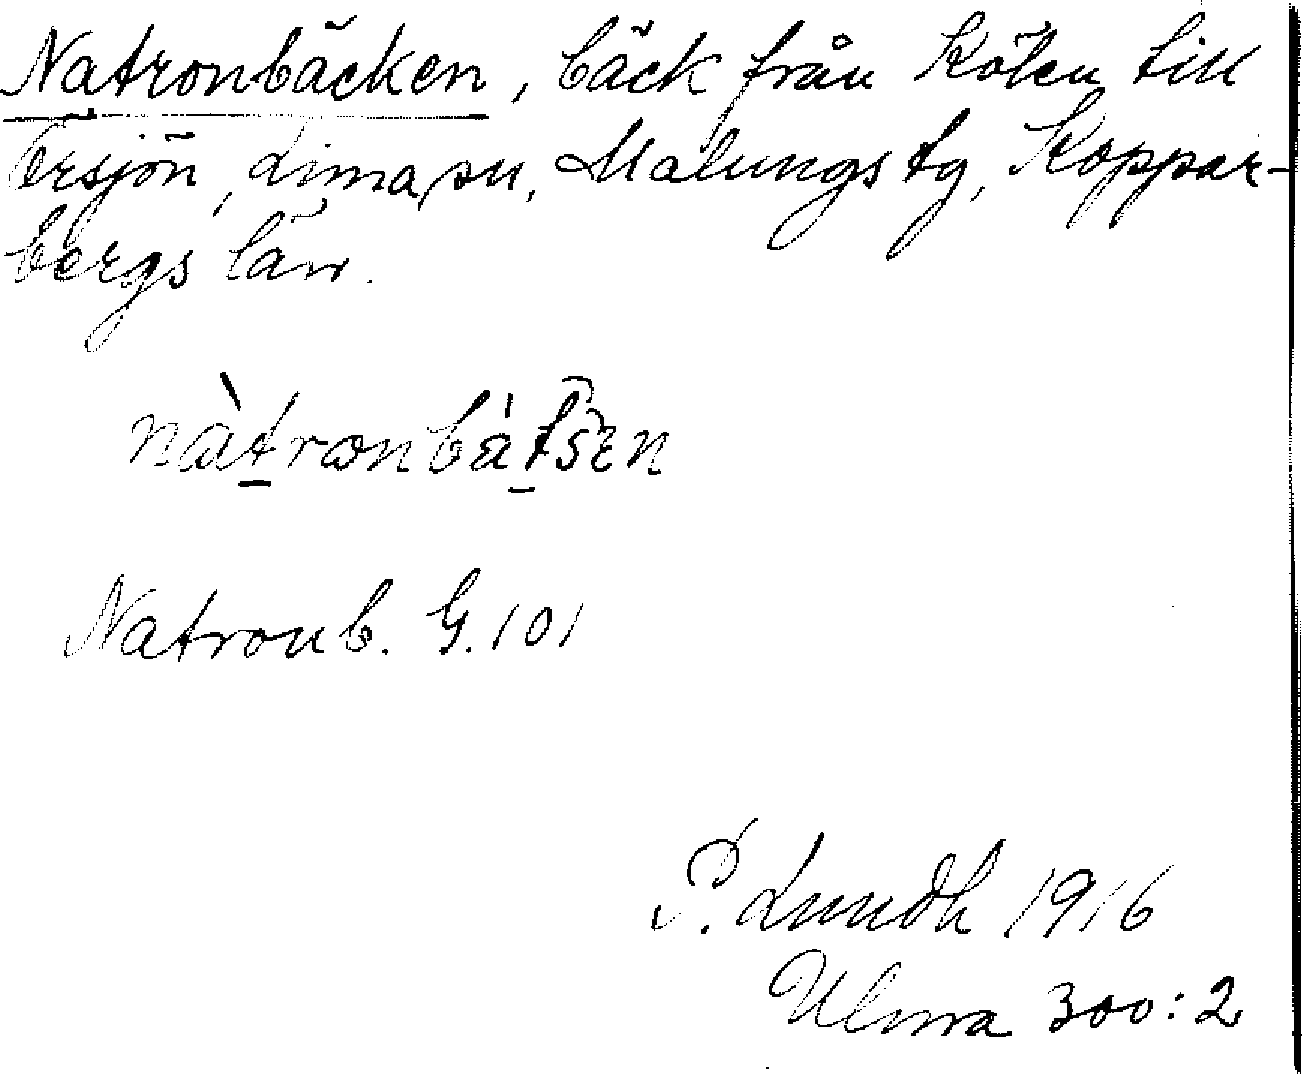 Natronbäcken, bäck från Kölen till
Örsjön, Lima sn, Malungs tg, Koppar-
bergs län.
nàtronbä̀tsen
Natronb. G. 101
P. Lundh 1916
Ulma 300:2